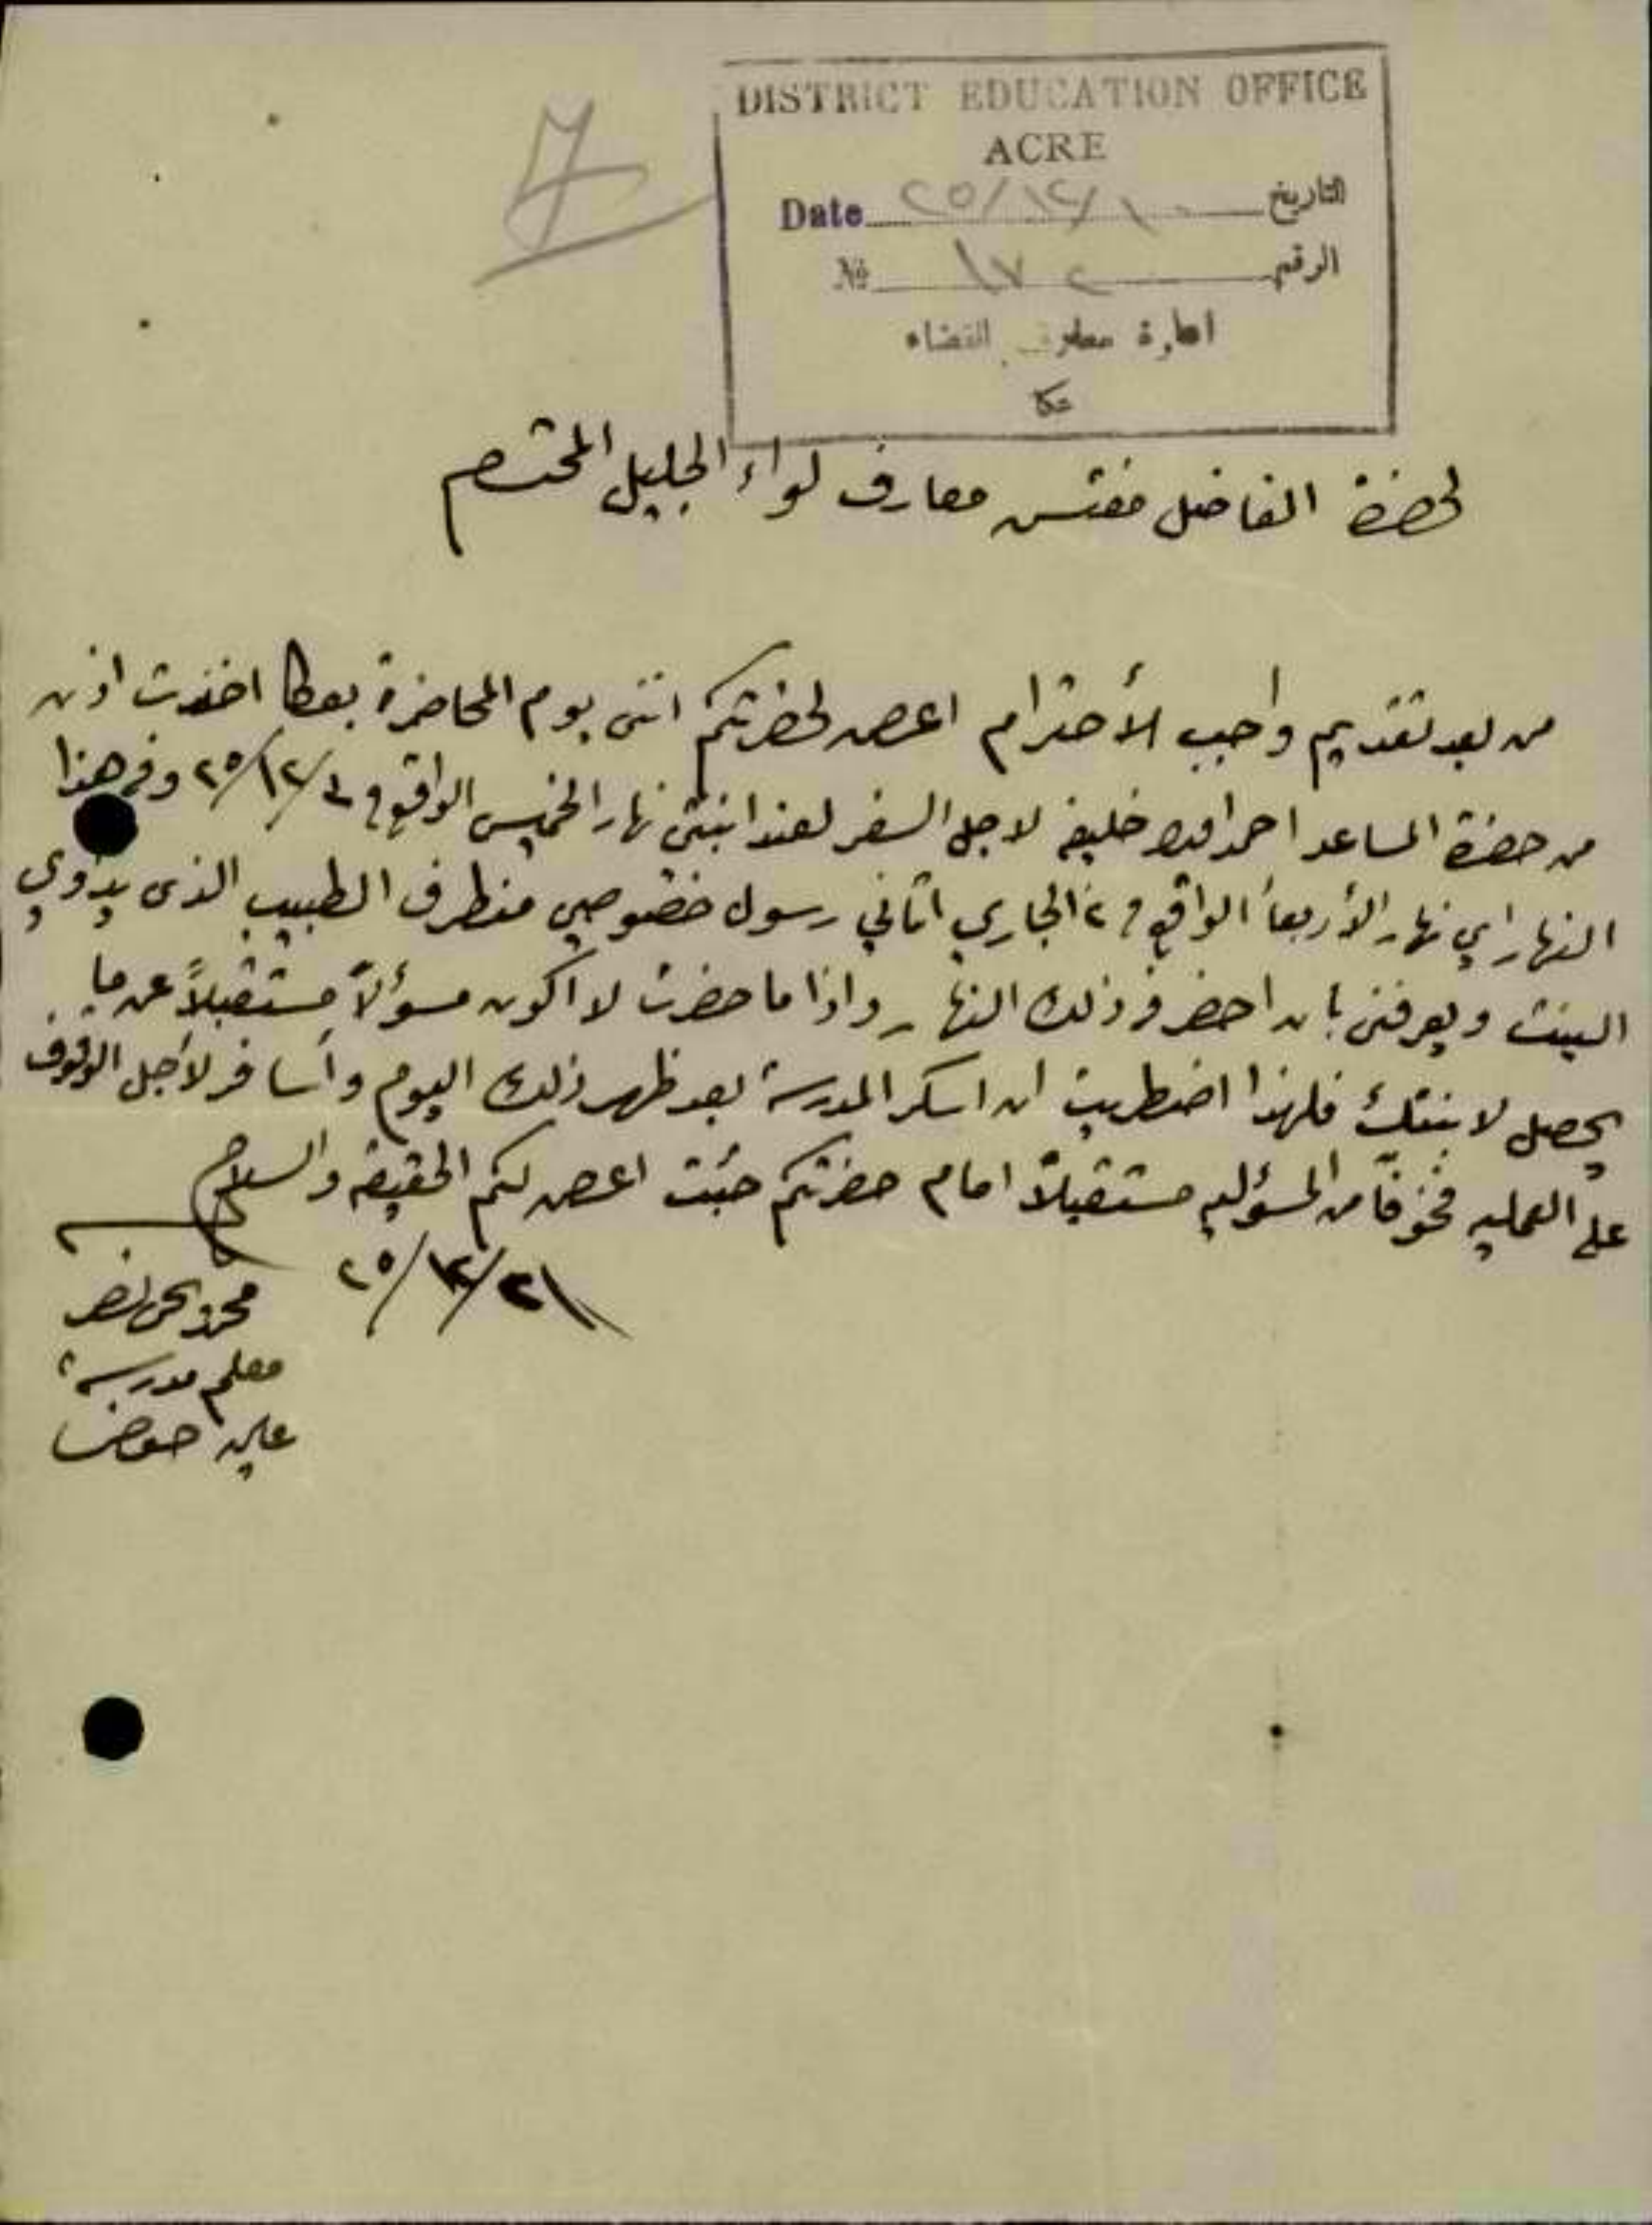 DISTRICT EDUCATION OFFICE
ACRE
Date ٢٥/١٢/١٠ التاريخ
№ ١٧٢ الرقم
ادارة معارف القضاء
عكا
لحضرة الفاضل مفتش معارف لواء الجليل المحترم
من بعد تقديم واجب الأحترام اعرض لحضرتكم انني يوم المحاضرة بعكا اخذت اذن
من حضرة المساعد احمد افندي خليفه لاجل السفر لعند ابنتي نهار الخميس الواقع في ٣/١٢/٢٥ وفي هذا
النهار اي نهار الأربعأ الواقع في ٢ الجاري اتاني رسول خصوصي منطرف الطبيب الذى يدوي
البنت ويعرفني بأن احضر في ذلك النهار واذا ما حضرت لا اكون مسؤلاً مستقبلاً عن ما
يحصل لابنتك فلهذا اضطريت ان اسكر المدرسة بعد ظهر ذلك اليوم وأسافر لأجل الوقوف
على العمليه فخوفاً من المسؤليه مستقبلاً امام حضرتكم جئت اعرض لكم الحقيقه والسلام
٢٥/١٢/
معلم مدرسة